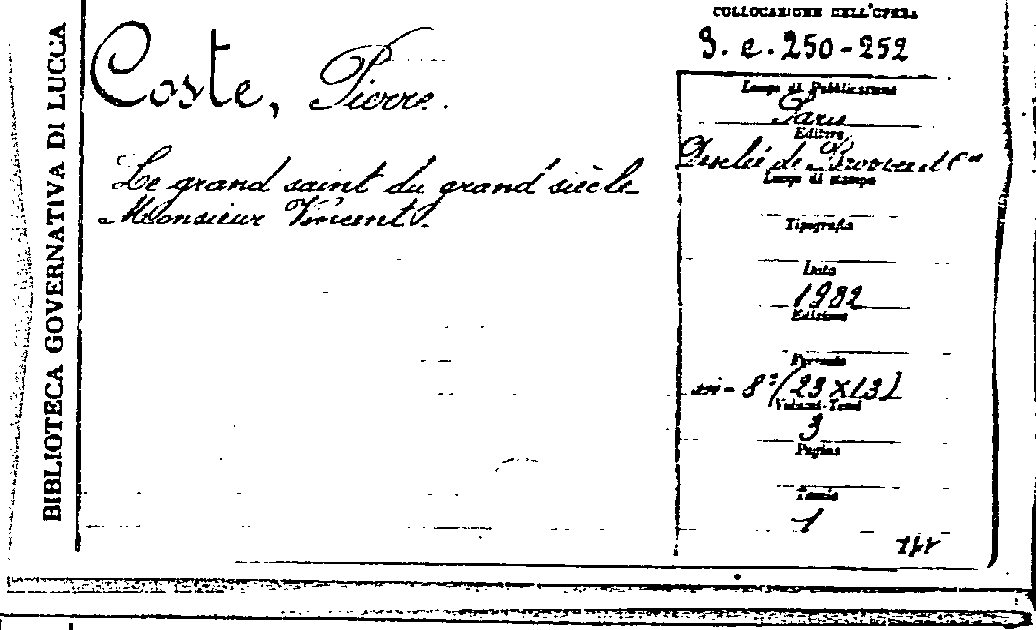 BIBLIOTECA GOVERNATIVA DI LUCCA
Coste, Pierre.
Le grand saint du grand siècle
Monsieur Vincent.
COLLOCAZIONE DELL'OPERA
3. e. 250-252
Luogo di Pubblicazione
Paris
Editore
Desclée de Brouwer et C.ie
Luogo di stampa
Tipografia
Data
1932
Edizione
Formato
in-8° (23 x 13)
Volumi-Tomi
3
Pagine
Tavole
1